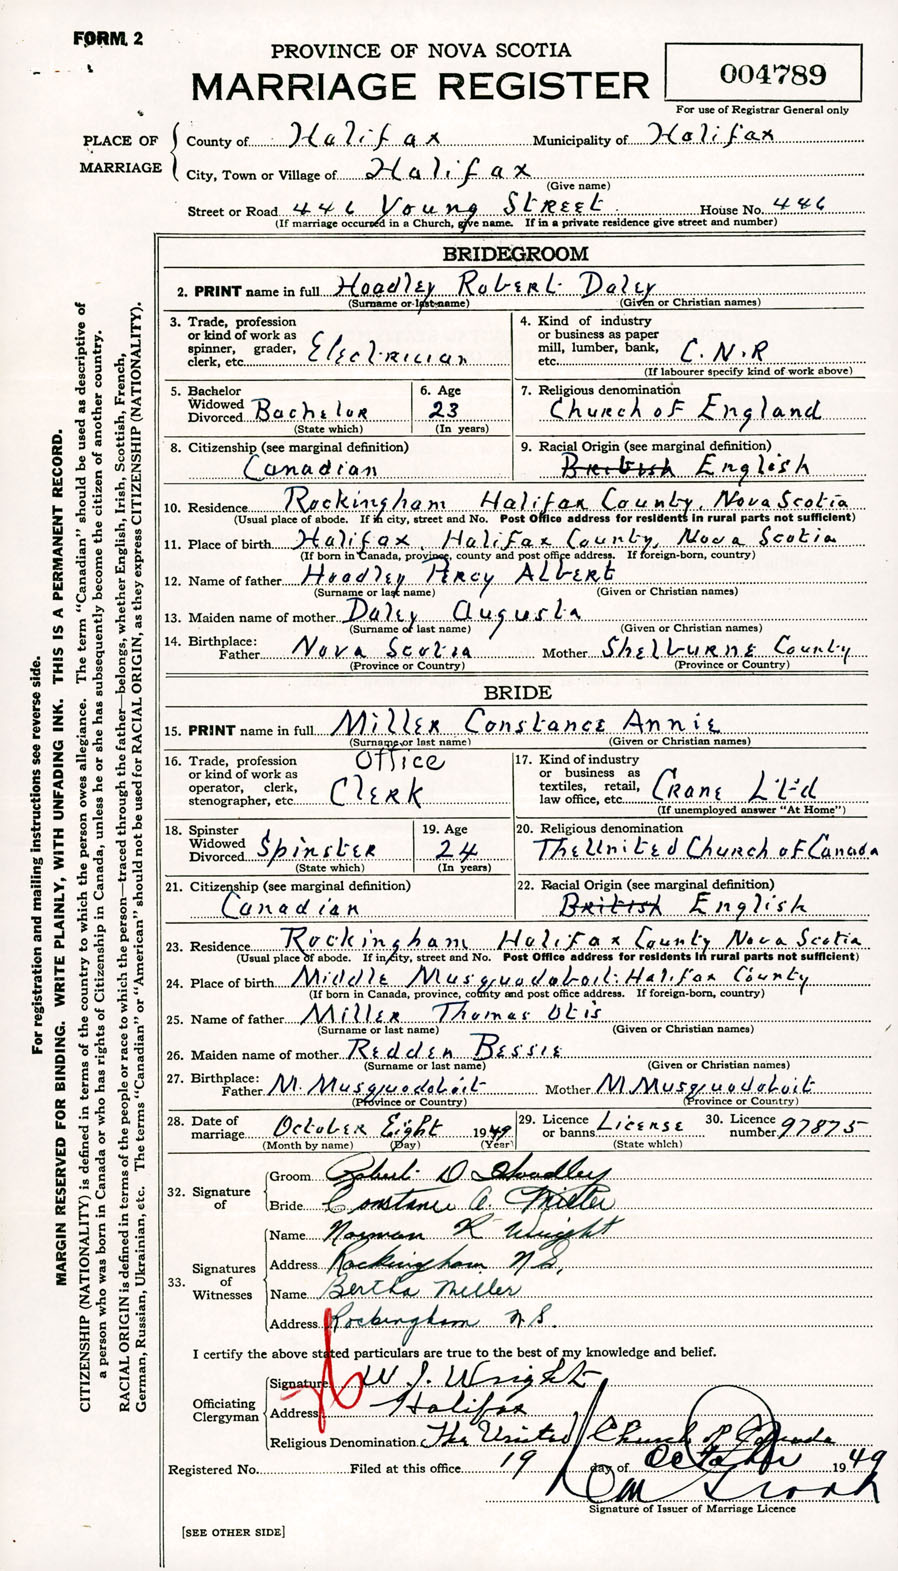 FORM 2
PROVINCE OF NOVA SCOTIA
MARRIAGE REGISTER
004789
For use of Registrar General only
PLACE OF MARRIAGE
County of Halifax Municipality of Halifax
City, Town or Village of Halifax
(Give name)
Street or Road 446 Young Street House No. 446
(If marriage occurred in a Church, give name. If in a private residence give street and number)
BRIDEGROOM
2. PRINT name in full Hoadley Robert Daley
(Surname or last name) (Given or Christian names)
3. Trade, profession or kind of work as spinner, grader, clerk, etc. Electrician
4. Kind of industry or business as paper mill, lumber, bank, etc. C.N.R
(If labourer specify kind of work above)
5. Bachelor Widowed Divorced Bachelor
(State which)
6. Age 23
(In years)
7. Religious denomination
Church of England
8. Citizenship (see marginal definition)
Canadian
9. Racial Origin (see marginal definition)
British English
10. Residence Rockingham Halifax County, Nova Scotia
(Usual place of abode. If in city, street and No. Post Office address for residents in rural parts not sufficient)
11. Place of birth Halifax, Halifax County, Nova Scotia
(If born in Canada, province, county and post office address. If foreign-born, country)
12. Name of father Hoadley Percy Albert
(Surname or last name) (Given or Christian names)
13. Maiden name of mother Daley Augusta
(Surname or last name) (Given or Christian names)
14. Birthplace: Father Nova Scotia Mother Shelburne County
(Province or Country) (Province or Country)
BRIDE
15. PRINT name in full Miller Constance Annie
(Surname or last name) (Given or Christian names)
16. Trade, profession or kind of work as operator, clerk, stenographer, etc. Office Clerk
17. Kind of industry or business as textiles, retail, law office, etc. Crane L't'd
(If unemployed answer "At Home")
18. Spinster Widowed Divorced Spinster
(State which)
19. Age 24
(In years)
20. Religious denomination
The United Church of Canada
21. Citizenship (see marginal definition)
Canadian
22. Racial Origin (see marginal definition)
British English
23. Residence Rockingham Halifax County Nova Scotia
(Usual place of abode. If in city, street and No. Post Office address for residents in rural parts not sufficient)
24. Place of birth Middle Musquodoboit Halifax County
(If born in Canada, province, county and post office address. If foreign-born, country)
25. Name of father Miller Thomas Otis
(Surname or last name) (Given or Christian names)
26. Maiden name of mother Redden Bessie
(Surname or last name) (Given or Christian names)
27. Birthplace: Father M. Musquodoboit Mother M. Musquodoboit
(Province or Country) (Province or Country)
28. Date of marriage October Eight 1949
(Month by name) (Day) (Year)
29. Licence or banns License
(State which)
30. Licence number 97875
32. Signature of
Groom Robert D Hoadley
Bride Constance A. Miller
33. Signatures of Witnesses
Name Norman R Wright
Address Rockingham N.S.
Name Bertha Miller
Address Rockingham N.S.
I certify the above stated particulars are true to the best of my knowledge and belief.
Officiating Clergyman
Signature W. J. Wright
Address Halifax
Religious Denomination The United Church of Canada
Registered No. Filed at this office 19 day of October 1949
Signature of Issuer of Marriage Licence
[SEE OTHER SIDE]
For registration and mailing instructions see reverse side.
MARGIN RESERVED FOR BINDING. WRITE PLAINLY, WITH UNFADING INK. THIS IS A PERMANENT RECORD.
CITIZENSHIP (NATIONALITY) is defined in terms of the country to which the person owes allegiance. The term "Canadian" should be used as descriptive of
a person who was born in Canada or who has rights of Citizenship in Canada, unless he or she has subsequently become the citizen of another country.
RACIAL ORIGIN is defined in terms of the people or race to which the person—traced through the father—belongs, whether English, Irish, Scottish, French,
German, Russian, Ukrainian, etc. The terms "Canadian" or "American" should not be used for RACIAL ORIGIN, as they express CITIZENSHIP (NATIONALITY).